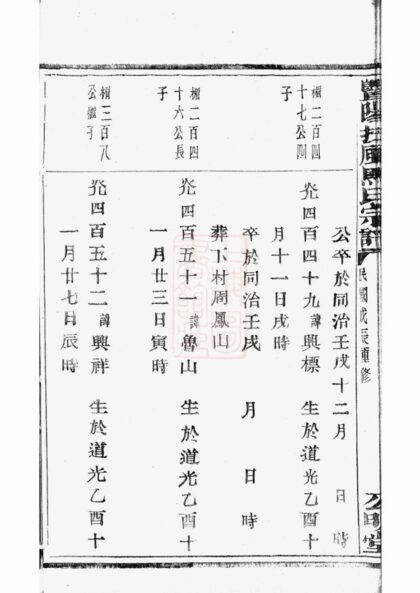 暨陽扶風馬氏宗譜
民國戊辰重修
公明堂
公卒於同治壬戌十二月 日 時
樹二百四十七公四子
茪四百四十九諱興標 生於道光乙酉十月十一日戌時
卒於同治壬戌 月 日 時
葬下村周鳳山
樹二百四十六公長子
茪四百五十一諱魯山 生於道光乙酉十一月廿三日寅時
三百八公
四百五十二諱興祥 生於道光乙酉十一月廿七日辰時